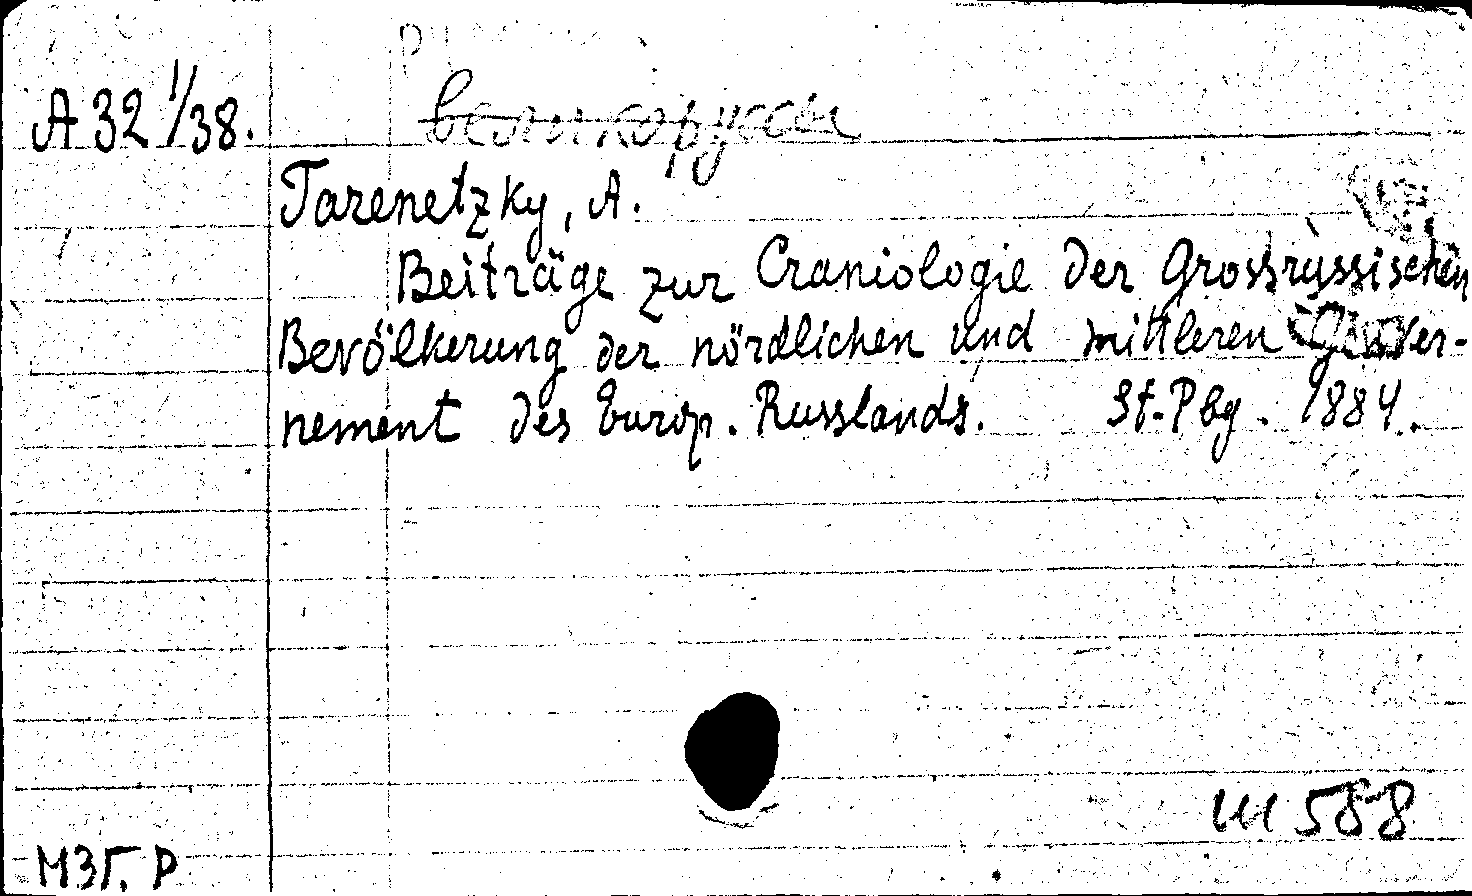 A 32 1/38.
великоруссы
Tarenetzky, A.
Beiträge zur Craniologie der Grossrussischen
Bevölkerung der nördlichen und mittleren Gouver-
nement des Europ. Russlands. St.-Pbg. 1884.
Ш 588
МЗГ. Р